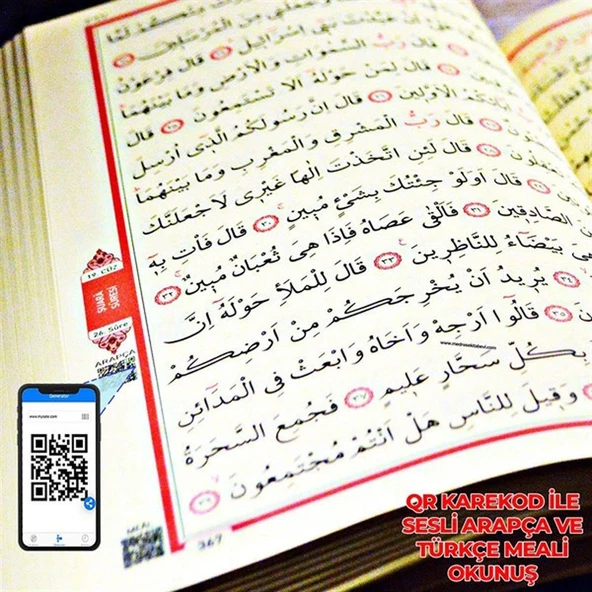 مِنْكُمْ لَمَّا
وَجَعَلَنِي مِنَ الْمُرْسَلِينَ
اَنْ عَبَّدْتَ بَنِي اِسْرَائِيلَ ﴿٢٢﴾ قَالَ فِرْعَوْنُ
قَالَ رَبُّ السَّمٰوَاتِ وَالْاَرْضِ وَمَا بَيْنَهُمَا
قَالَ لِمَنْ حَوْلَهُ اَلَا تَسْتَمِعُونَ ﴿٢٥﴾ قَالَ
اٰبَائِكُمُ الْاَوَّلِينَ ﴿٢٦﴾ قَالَ اِنَّ رَسُولَكُمُ الَّذِي اُرْسِلَ
قَالَ رَبُّ الْمَشْرِقِ وَالْمَغْرِبِ وَمَا بَيْنَهُمَا
قَالَ لَئِنِ اتَّخَذْتَ اِلٰهًا غَيْرِي لَاَجْعَلَنَّكَ
قَالَ اَوَلَوْ جِئْتُكَ بِشَيْءٍ مُبِينٍ ﴿٣٠﴾ قَالَ فَأْتِ بِهِ
الصَّادِقِينَ ﴿٣١﴾ فَاَلْقٰى عَصَاهُ فَاِذَا هِيَ ثُعْبَانٌ مُبِينٌ ﴿٣٢﴾
هِيَ بَيْضَاءُ لِلنَّاظِرِينَ ﴿٣٣﴾ قَالَ لِلْمَلَاِ حَوْلَهُ اِنَّ
يُرِيدُ اَنْ يُخْرِجَكُمْ مِنْ اَرْضِكُمْ
قَالُوا اَرْجِهْ وَاَخَاهُ وَابْعَثْ فِي الْمَدَائِنِ
بِكُلِّ سَحَّارٍ عَلِيمٍ ﴿٣٧﴾ فَجُمِعَ السَّحَرَةُ
وَقِيلَ لِلنَّاسِ هَلْ اَنْتُمْ مُجْتَمِعُونَ ﴿٣٩﴾
19. CÜZ
ŞUARA
SURESİ
26. Sûre
ARAPÇA
MEAL
367
Generator
QR KAREKOD İLE
SESLİ ARAPÇA VE
TÜRKÇE MEALİ
OKUNUŞ